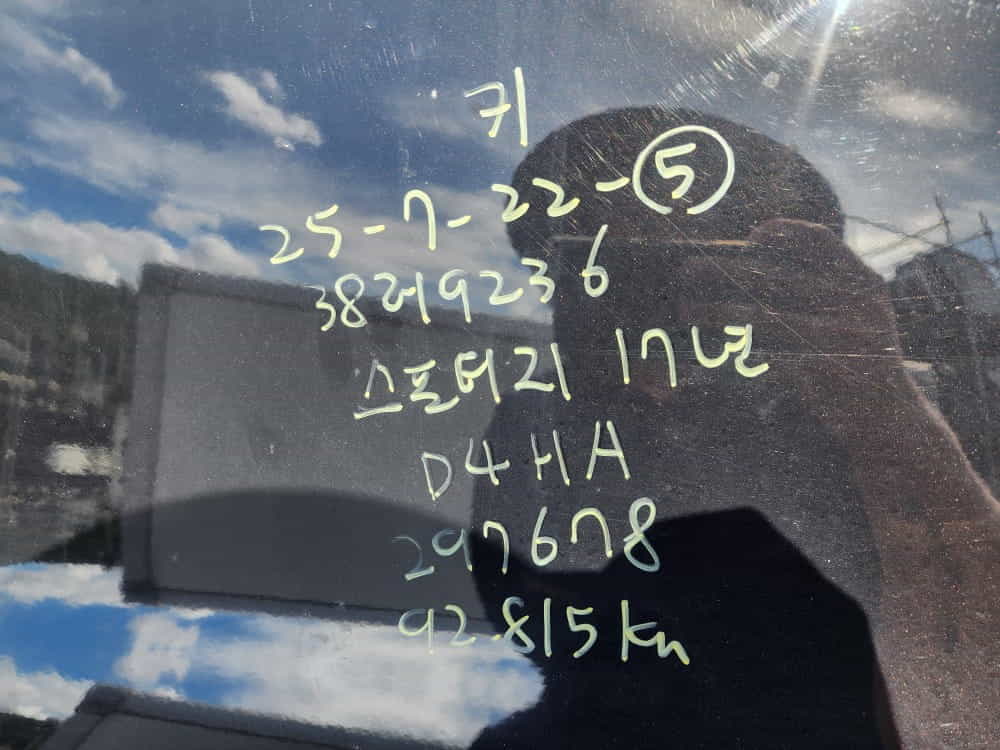 키
25-7-22-⑤
38러9236
스포티지 17년
D4HA
297678
92.815km